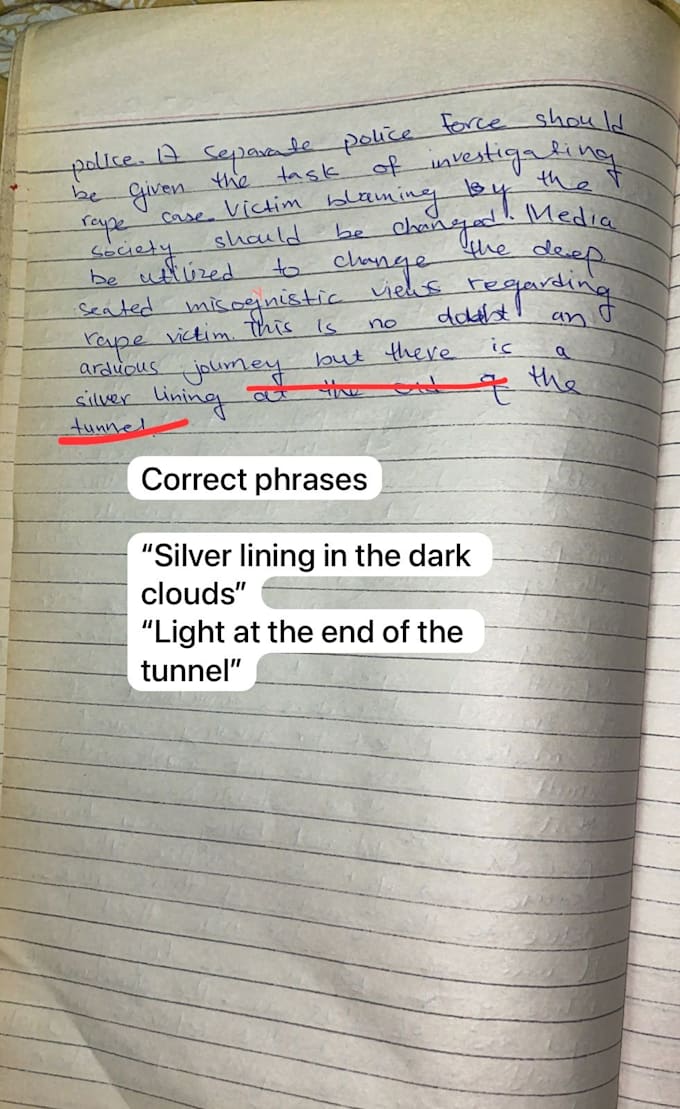 police. A separate police force should
be given the task of investigating
rape case. Victim blaming by the
society should be changed. Media
be utilized to change the deep
seated misognistic views regarding
rape victim. This is no doubt an
arduous journey but there is a
silver lining at the end of the
tunnel.
Correct phrases
“Silver lining in the dark
clouds”
“Light at the end of the
tunnel”